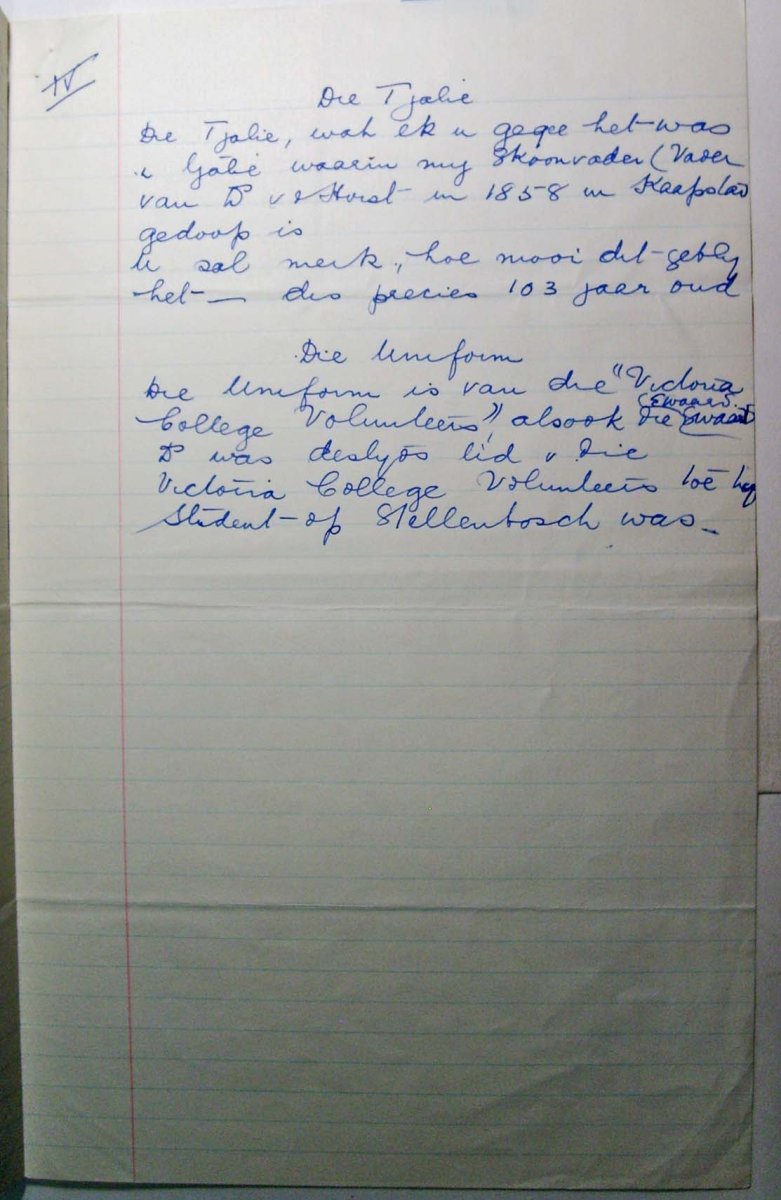 IV
Die Tjalie
Die Tjalie, wat ek u gegee het was
'n Tjalie waarin my Skoonvader (Vader
van Dr v d Horst in 1858 in Kaapstad
gedoop is
U sal merk, hoe mooi dit gebly
het — dis precies 103 jaar oud
Die Uniform
Die Uniform is van die "Victoria
College Volunteers", alsook die (Swaard)
Dr was destyds lid v die
Victoria College Volunteers toe hy
Student op Stellenbosch was —